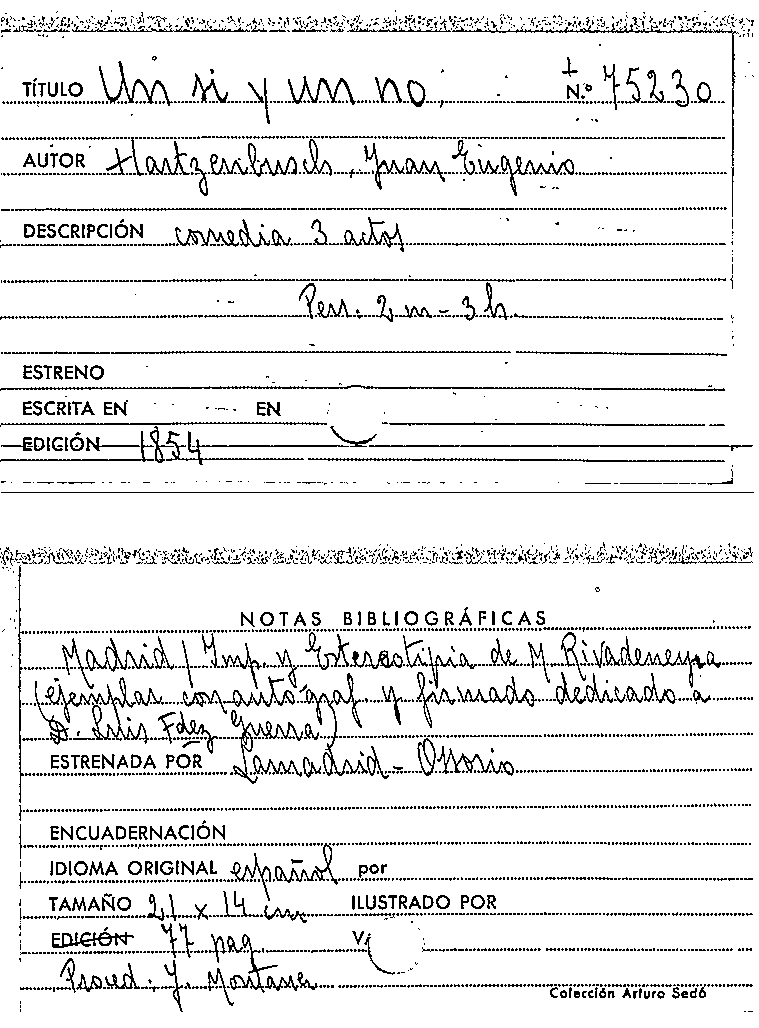 TÍTULO Un si y un no, N.º 75230
AUTOR Hartzenbusch, Juan Eugenio
DESCRIPCIÓN comedia 3 actos
Pers. 2 m - 3 h.
ESTRENO
ESCRITA EN EN
EDICIÓN 1854
NOTAS BIBLIOGRÁFICAS
Madrid / Imp. y Estereotipia de M. Rivadeneyra
(ejemplar con autógraf. y firmado dedicado a
D. Luis Fdez Guerra)
ESTRENADA POR Lamadrid - Ossorio
ENCUADERNACIÓN
IDIOMA ORIGINAL español por
TAMAÑO 21 x 14 cm ILUSTRADO POR
EDICIÓN 77 pag V.
Proced. J. Montaner
Colección Arturo Sedó